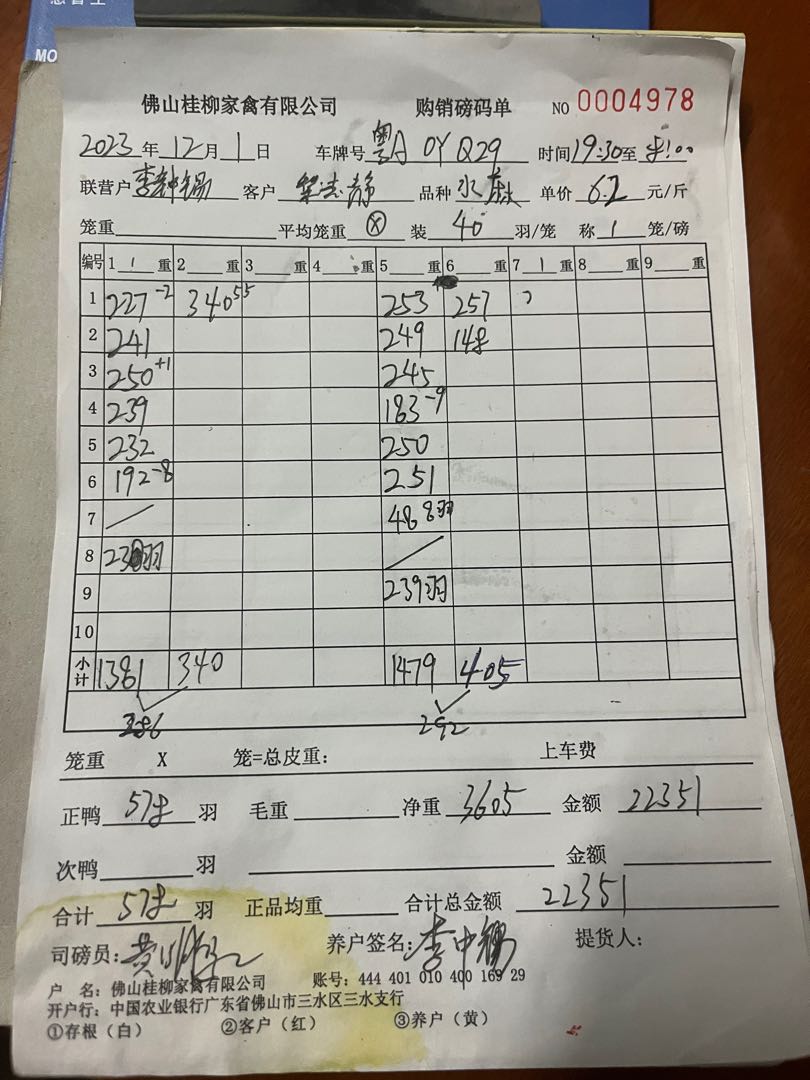 MO
佛山桂柳家禽有限公司 购销磅码单 NO 0004978
2023年12月1日 车牌号 粤A 0Y Q29 时间 19:30至
联营户 李中锡 客户 静 品种 水 单价 6.2 元/斤
笼重 平均笼重 ⓧ 装 40 羽/笼 称 1 笼/磅
编号 1 1 重 2 重 3 重 4 重 5 重 6 重 7 1 重 8 重 9 重
1 227-2 34055 253 257
2 241 249
3 250+1 245
4 239 183-9
5 232 250
6 192-8 251
7 / 48 8羽
8 羽 /
9 239羽
10
小计 1381 340 1479 405
292
笼重 X 笼=总皮重: 上车费
正鸭 羽 毛重 净重 3605 金额 22351
次鸭 羽 金额
合计 羽 正品均重 合计总金额 22351
司磅员: 黄 养户签名: 李中锡 提货人:
户 名: 佛山桂柳家禽有限公司 账号: 444 401 010 400 169 29
开户行: 中国农业银行广东省佛山市三水区三水支行
①存根（白） ②客户（红） ③养户（黄）